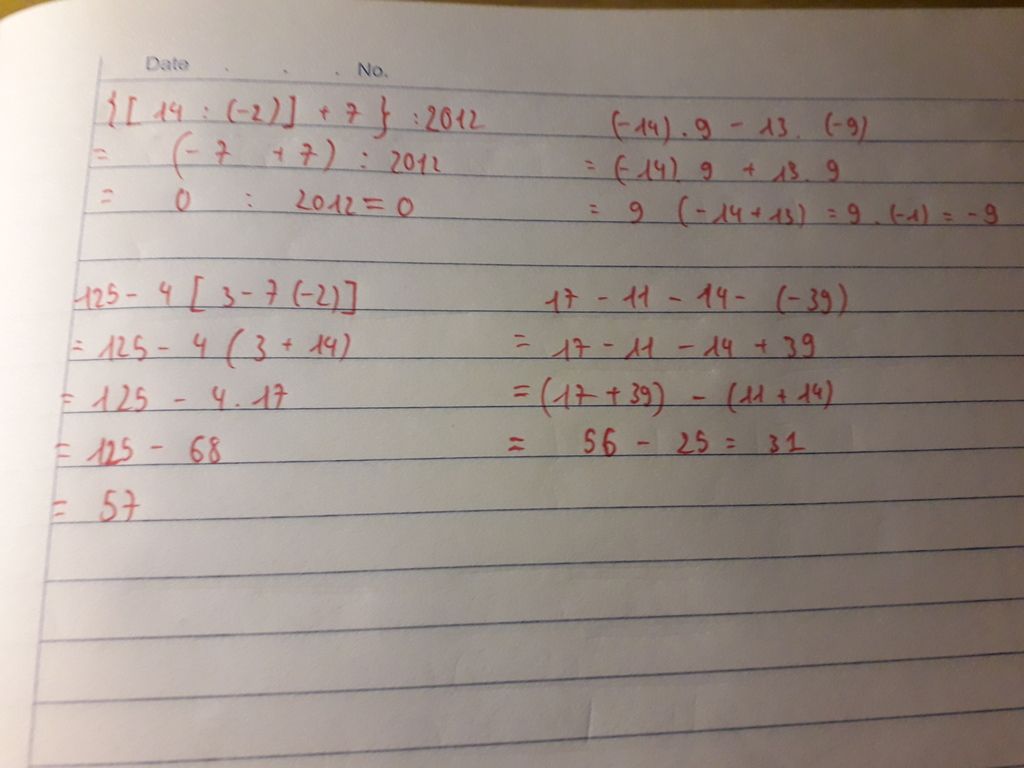 Date . . . No.
{[ 14 : (-2)] + 7 } : 2012
= (- 7 + 7) : 2012
= 0 : 2012 = 0
(-14) . 9 - 13 . (-9)
= (-14) 9 + 13 . 9
= 9 (-14 + 13) = 9 . (-1) = -9
125 - 4 [ 3 - 7 (-2)]
= 125 - 4 ( 3 + 14)
= 125 - 4 . 17
= 125 - 68
= 57
17 - 11 - 14 - (-39)
= 17 - 11 - 14 + 39
= (17 + 39) - (11 + 14)
= 56 - 25 = 31